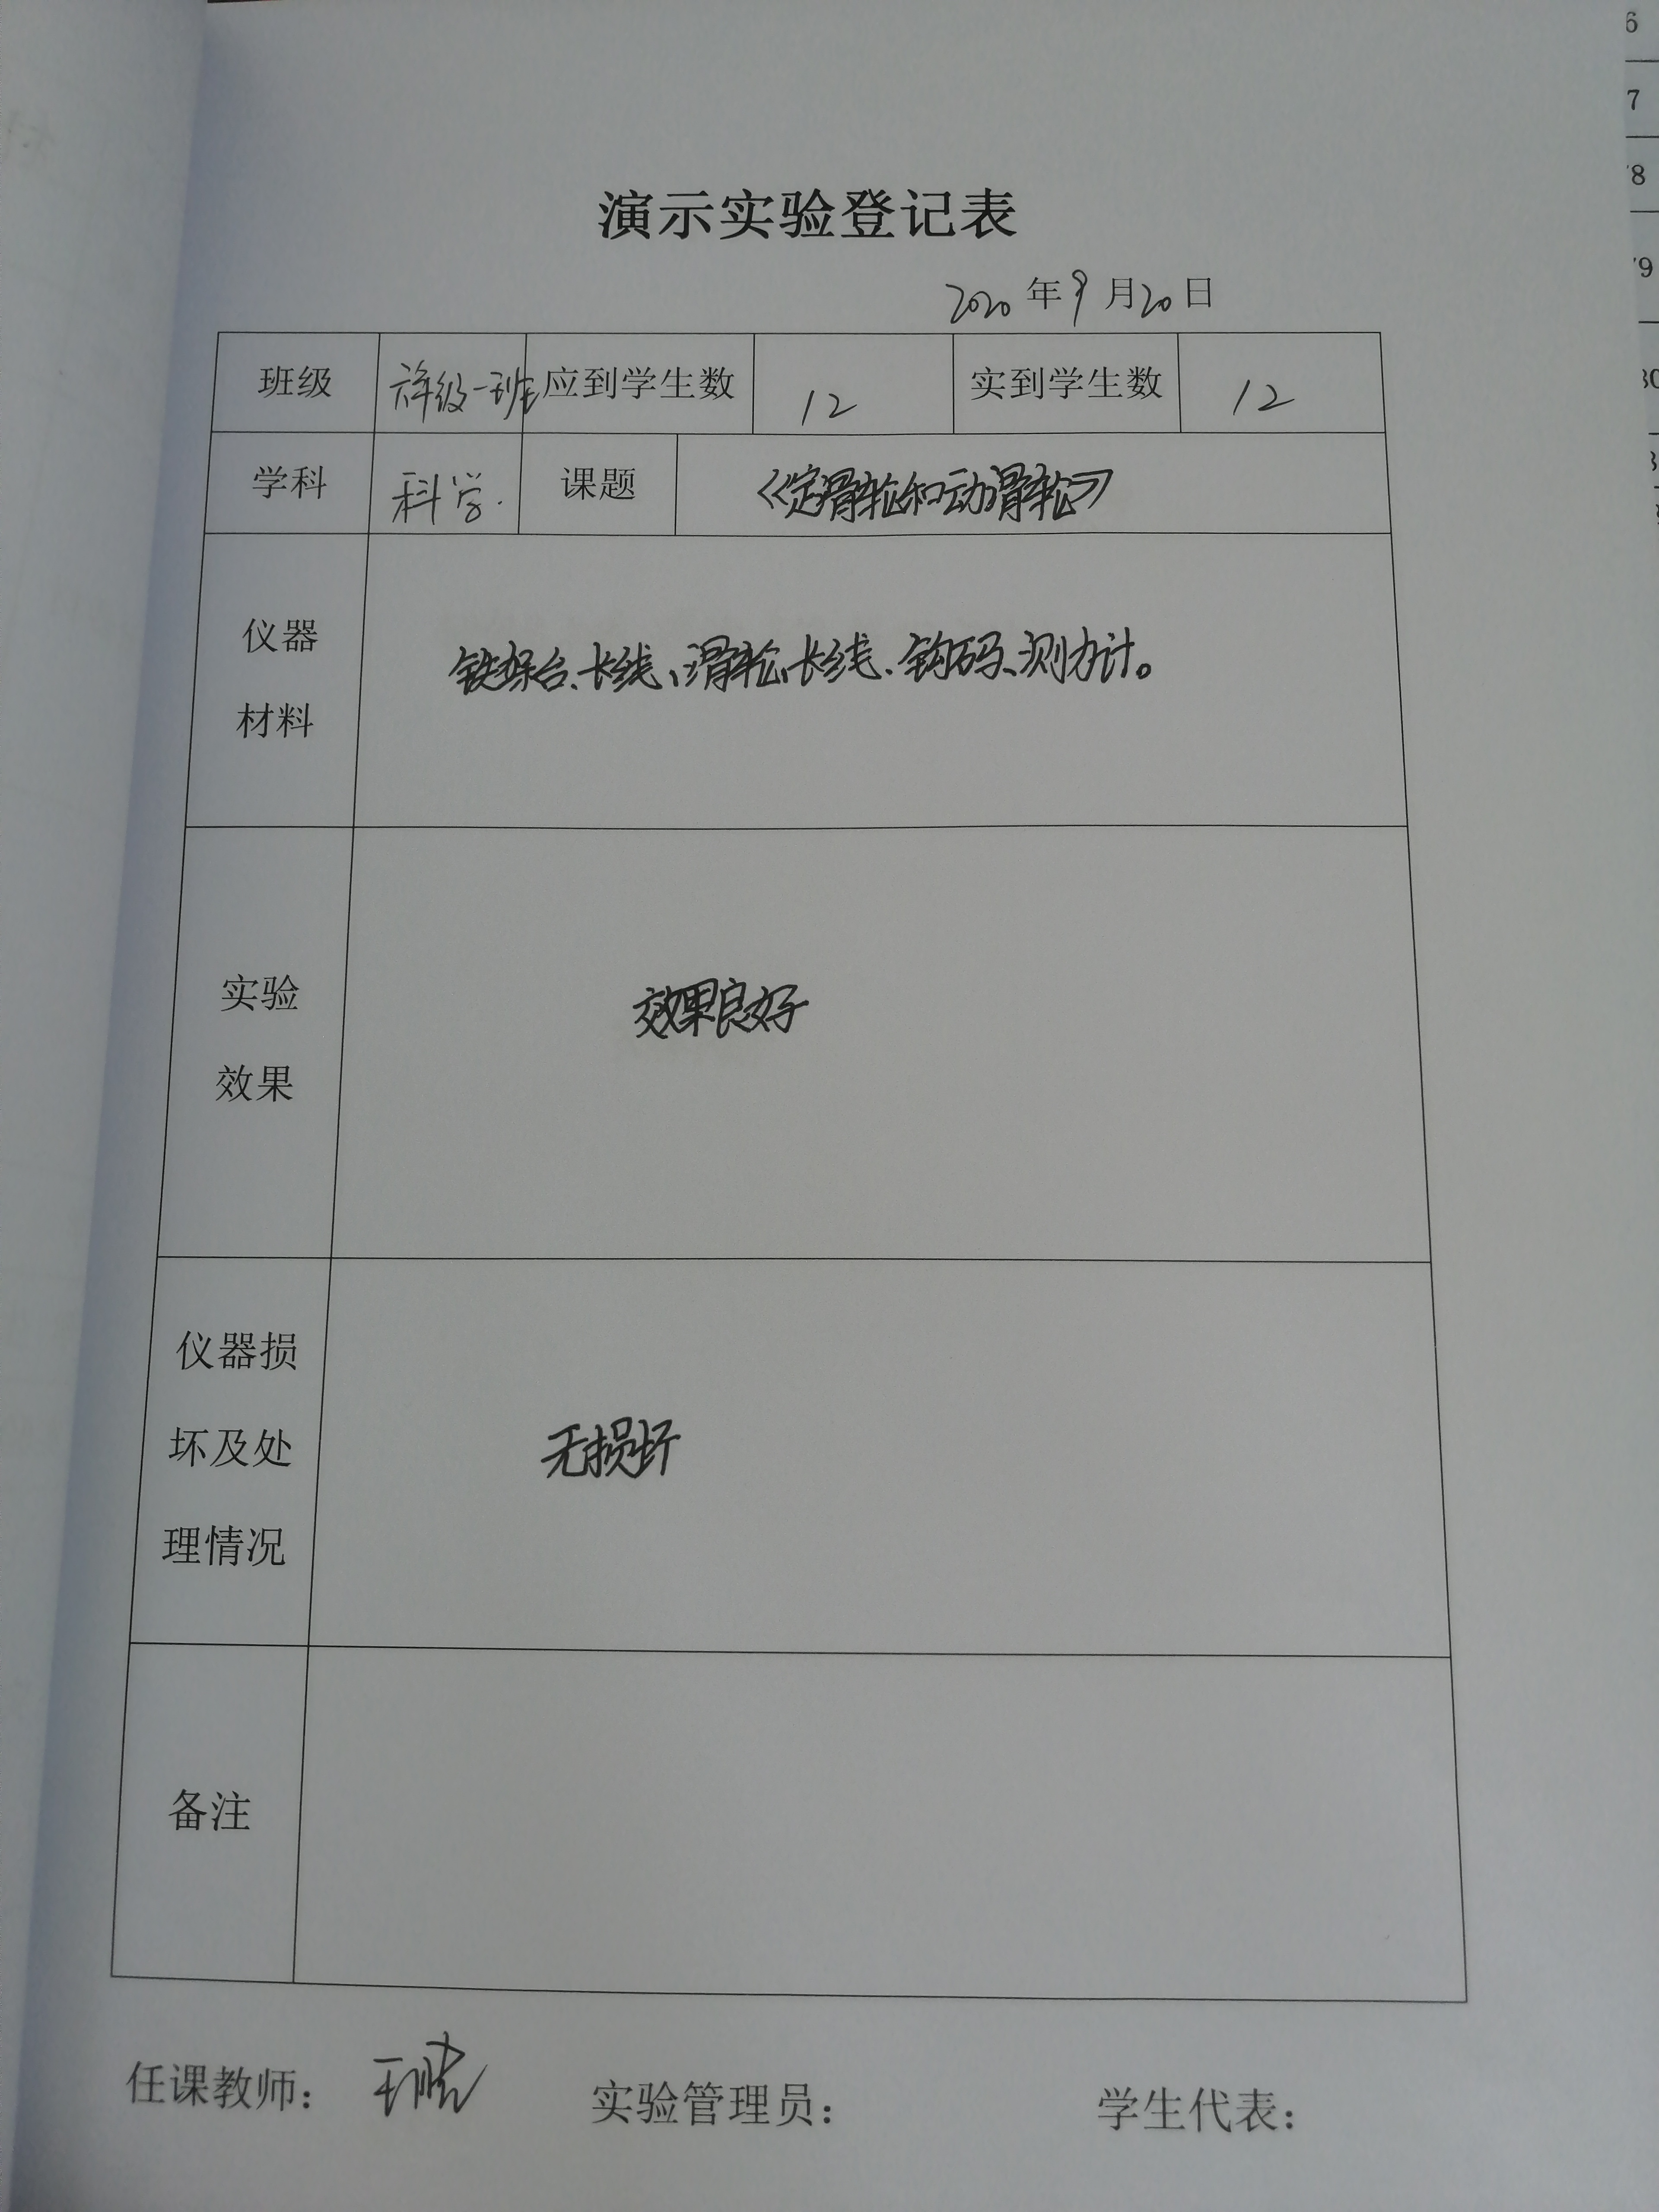 演示实验登记表
2020年9月20日
班级 六年级一班 应到学生数 12 实到学生数 12
学科 科学. 课题 《定滑轮和动滑轮》
仪器
材料
铁架台、长线、滑轮、长线、钩码、测力计。
实验
效果
效果良好
仪器损
坏及处
理情况
无损坏
备注
任课教师： 实验管理员： 学生代表：
6
7